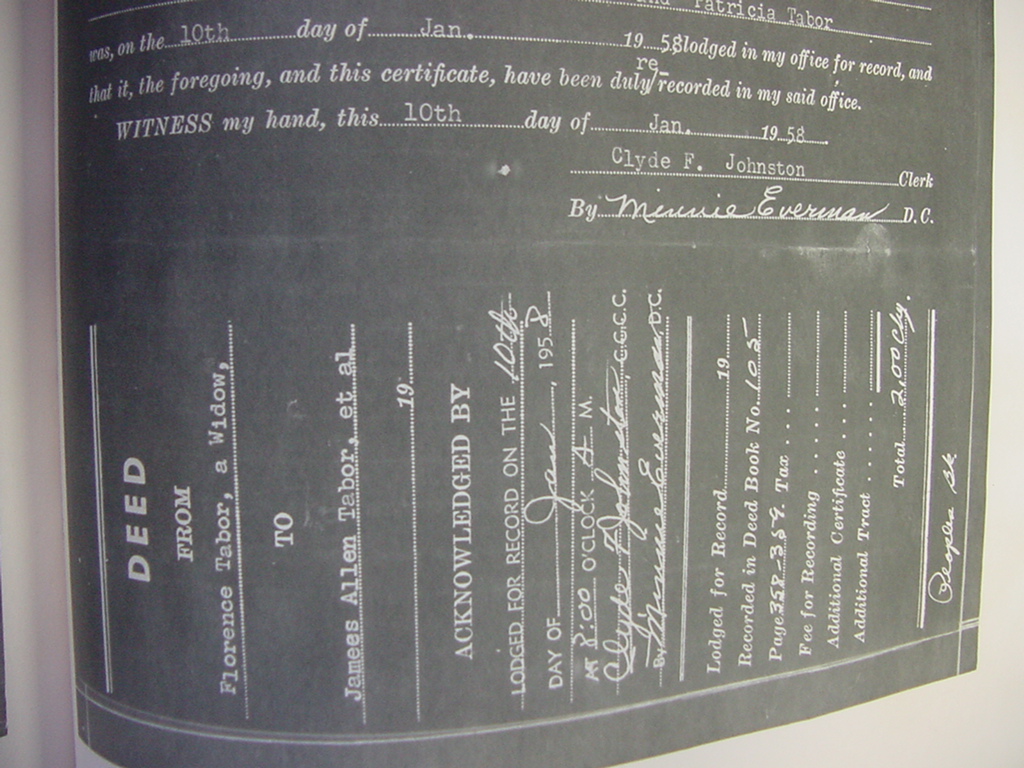 Patricia Tabor
was, on the 10th day of Jan. 19 58 lodged in my office for record, and
re-
that it, the foregoing, and this certificate, have been duly/recorded in my said office.
WITNESS my hand, this 10th day of Jan. 19 58
Clyde F. Johnston Clerk
By Minnie Everman D.C.
DEED
FROM
Florence Tabor, a Widow,
TO
Jamees Allen Tabor, et al
19
ACKNOWLEDGED BY
LODGED FOR RECORD ON THE 10th
DAY OF Jan, 1958
At 8:00 O'CLOCK A M.
Clyde F Johnston, C.C.C.C.
By Minnie Everman, D.C.
Lodged for Record 19
Recorded in Deed Book No. 105
Page 358-359. Tax
Fee for Recording
Additional Certificate
Additional Tract
Total 2.00 Chg.
Peoples Bk